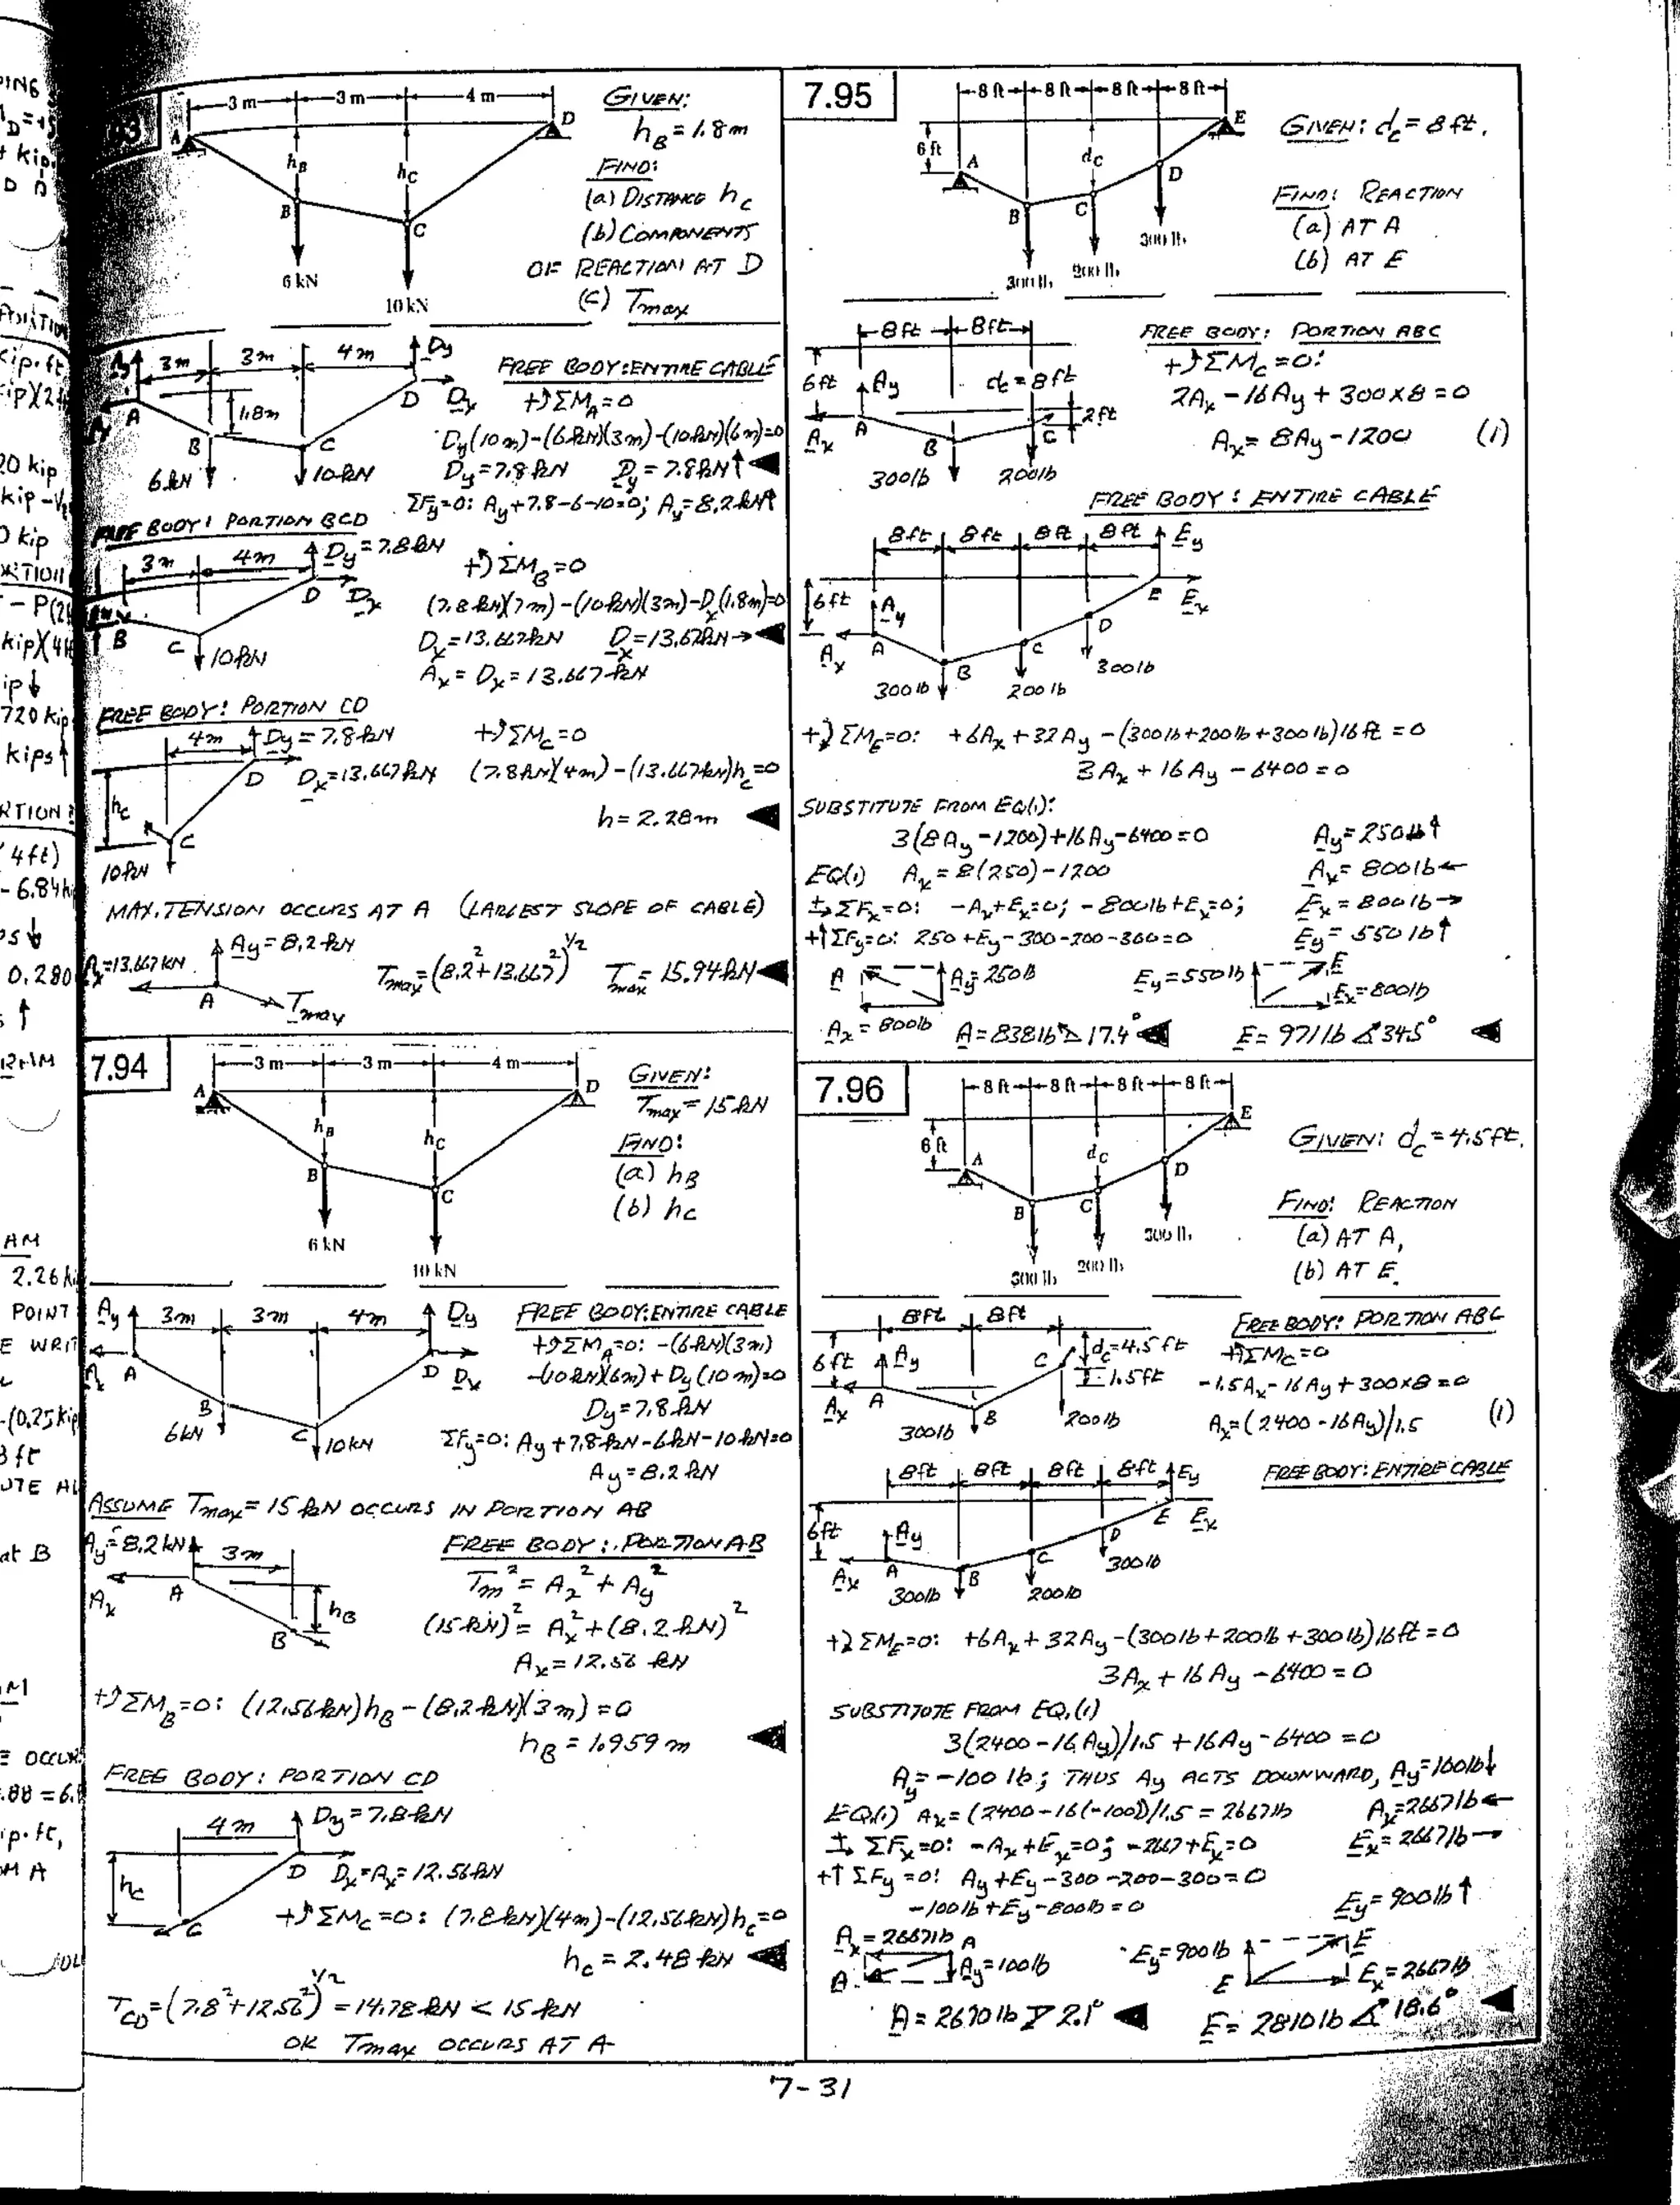 3 m 3 m 4 m
A D
hB hC
B C
6 kN
10 kN
GIVEN:
hB = 1.8 m
FIND:
(a) DISTANCE hC
(b) COMPONENTS
OF REACTION AT D
(c) Tmax
3m 3m 4m Dy
A 1.8m B C D Dx
6kN 10kN
FREE BODY: ENTIRE CABLE
+↺ΣMA=0
Dy(10m)-(6kN)(3m)-(10kN)(6m)=0
Dy=7.8kN Dy=7.8kN↑
ΣFy=0: Ay+7.8-6-10=0; Ay=8.2kN↑
FREE BODY: PORTION BCD
3m 4m Dy=7.8kN
B C D Dx
10kN
+↺ΣMB=0
(7.8kN)(7m)-(10kN)(3m)-Dx(1.8m)=0
Dx=13.667kN Dx=13.67kN→
Ax=Dx=13.667kN
FREE BODY: PORTION CD
4m Dy=7.8kN
D Dx=13.667kN
hC C
10kN
+↺ΣMC=0
(7.8kN)(4m)-(13.667kN)hC=0
h=2.28m
MAX. TENSION OCCURS AT A (LARGEST SLOPE OF CABLE)
Ay=8.2kN
Ax=13.667kN
A Tmax
Tmax=(8.2²+13.667²)^1/2 Tmax=15.94kN
7.94
3 m 3 m 4 m
A D
hB hC
B C
6 kN
10 kN
GIVEN:
Tmax=15kN
FIND:
(a) hB
(b) hC
Ay 3m 3m 4m Dy
Ax A B C D Dx
6kN 10kN
FREE BODY: ENTIRE CABLE
+↺ΣMA=0: -(6kN)(3m)
-(10kN)(6m)+Dy(10m)=0
Dy=7.8kN
ΣFy=0: Ay+7.8kN-6kN-10kN=0
Ay=8.2kN
ASSUME Tmax=15kN OCCURS IN PORTION AB
Ay=8.2kN 3m
Ax A hB B
FREE BODY: PORTION AB
Tm²=Ax²+Ay²
(15kN)²=Ax²+(8.2kN)²
Ax=12.56kN
+↺ΣMB=0: (12.56kN)hB-(8.2kN)(3m)=0
hB=1.959m
FREE BODY: PORTION CD
4m Dy=7.8kN
D Dx=Ax=12.56kN
hC C
+↺ΣMC=0: (7.8kN)(4m)-(12.56kN)hC=0
hC=2.48kN
TCD=(7.8²+12.56²)^1/2=14.78kN<15kN
OK Tmax OCCURS AT A
7.95
8 ft 8 ft 8 ft 8 ft
6 ft A dC E
B C D
300 lb 200 lb 300 lb
GIVEN: dC=8ft.
FIND: REACTION
(a) AT A
(b) AT E
8ft 8ft
6ft Ay dC=8ft
2ft
Ax A B C
300lb 200lb
FREE BODY: PORTION ABC
+↺ΣMC=0:
2Ax-16Ay+300x8=0
Ax=8Ay-1200 (1)
FREE BODY: ENTIRE CABLE
8ft 8ft 8ft 8ft Ey
6ft Ay E Ex
Ax A B C D
300lb 200lb 300lb
+↻ΣME=0: +6Ax+32Ay-(300lb+200lb+300lb)16ft=0
3Ax+16Ay-6400=0
SUBSTITUTE FROM EQ(1):
3(8Ay-1200)+16Ay-6400=0 Ay=250lb↑
EQ(1) Ax=8(250)-1200 Ax=800lb←
+→ΣFx=0: -Ax+Ex=0; -800lb+Ex=0; Ex=800lb→
+↑ΣFy=0: 250+Ey-300-200-300=0 Ey=550lb↑
A Ay=250lb Ey=550lb E
Ax=800lb Ex=800lb
A=838lb 17.4° E=971lb 34.5°
7.96
8 ft 8 ft 8 ft 8 ft
6 ft A dC E
B C D
300 lb 200 lb 300 lb
GIVEN: dC=4.5ft.
FIND: REACTION
(a) AT A,
(b) AT E.
8ft 8ft
6ft Ay C dC=4.5ft
1.5ft
Ax A B
300lb 200lb
FREE BODY: PORTION ABC
+↺ΣMC=0
-1.5Ax-16Ay+300x8=0
Ax=(2400-16Ay)/1.5 (1)
8ft 8ft 8ft 8ft Ey
FREE BODY: ENTIRE CABLE
6ft Ay E Ex
Ax A B C D
300lb 200lb 300lb
+↻ΣME=0: +6Ax+32Ay-(300lb+200lb+300lb)16ft=0
3Ax+16Ay-6400=0
SUBSTITUTE FROM EQ.(1)
3(2400-16Ay)/1.5+16Ay-6400=0
Ay=-100 lb; THUS Ay ACTS DOWNWARD, Ay=100lb↓
EQ(1) Ax=(2400-16(-100))/1.5=2667lb Ax=2667lb←
+→ΣFx=0: -Ax+Ex=0; -2667+Ex=0 Ex=2667lb→
+↑ΣFy=0: Ay+Ey-300-200-300=0
-100lb+Ey-800lb=0 Ey=900lb↑
Ax=2667lb A Ey=900lb E
A Ay=100lb E Ex=2667lb
A=2670lb 2.1° E=2810lb 18.6°
7-31